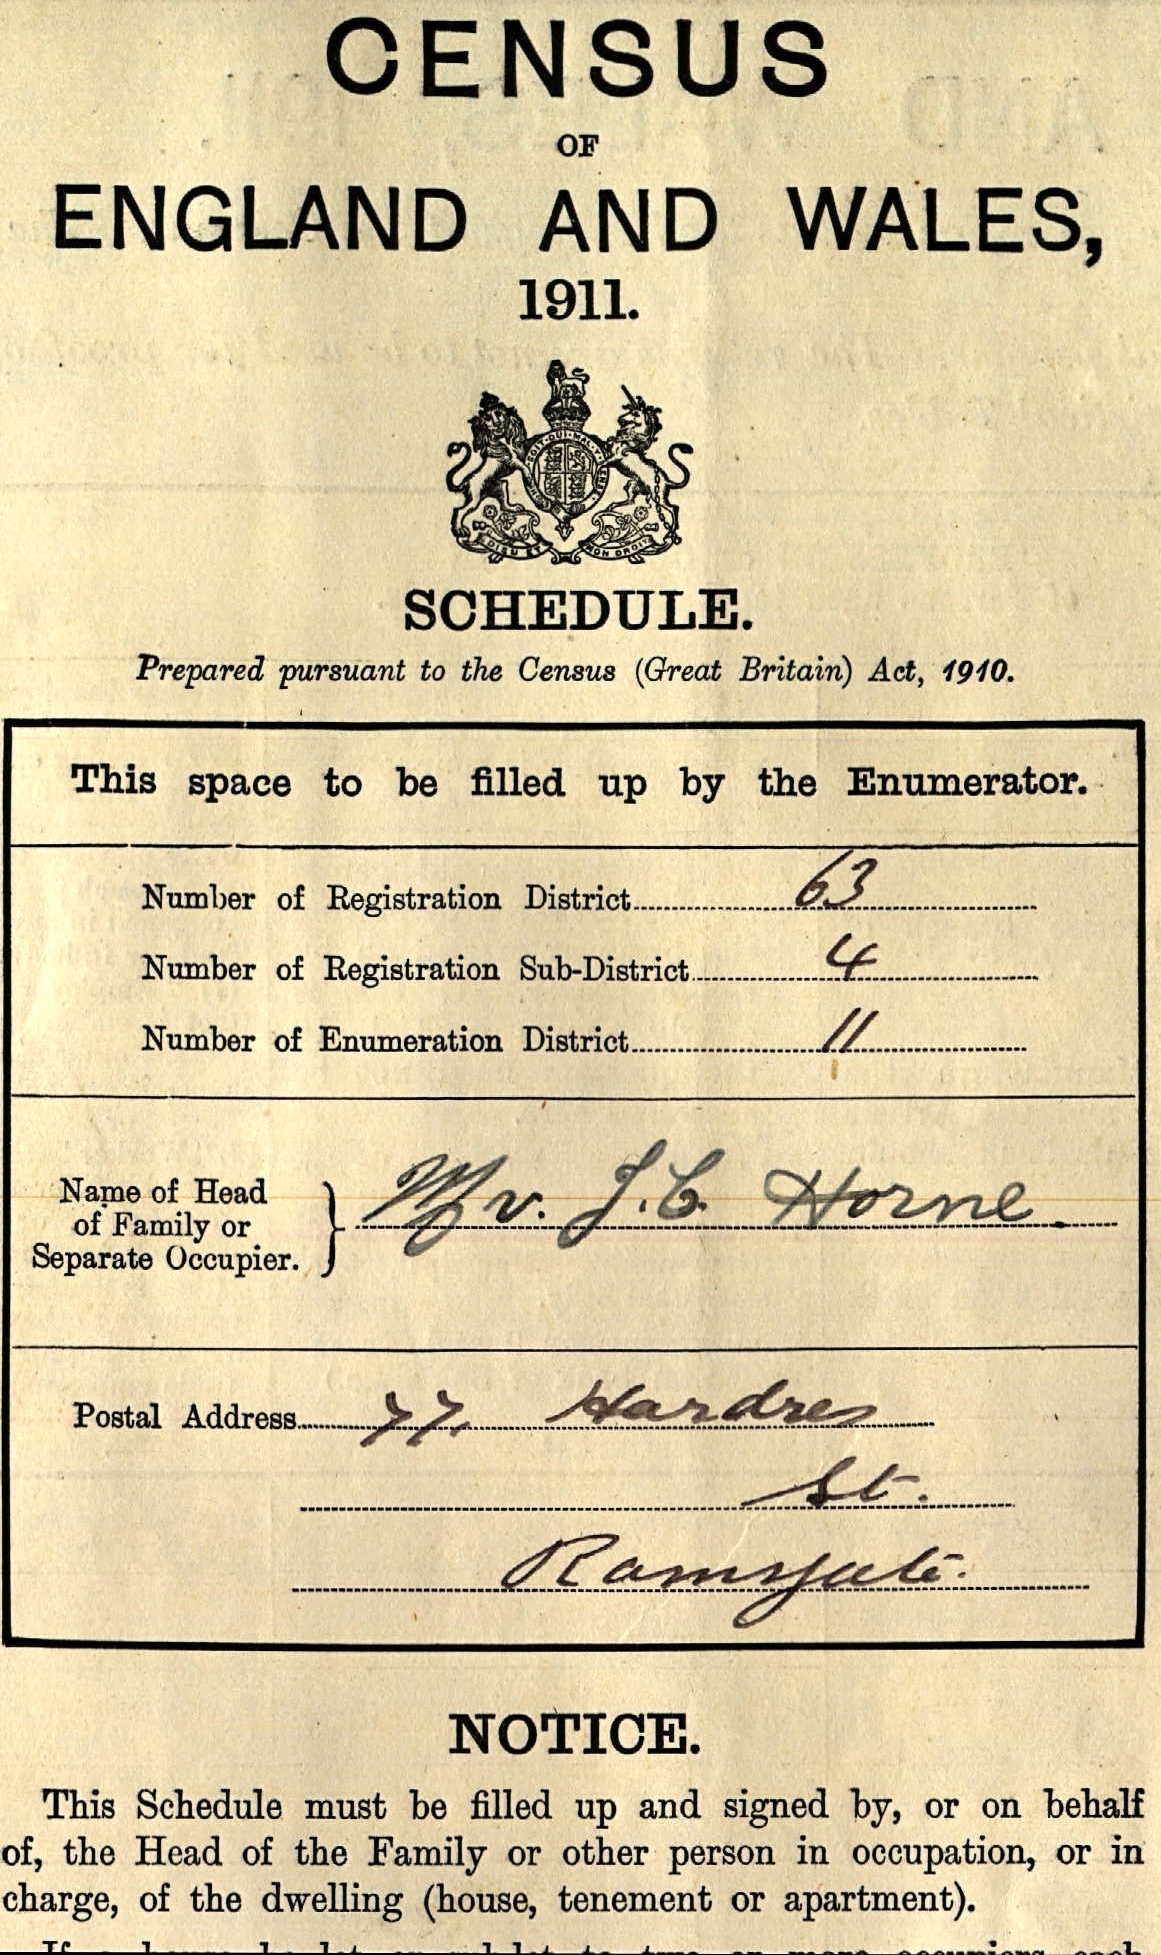 CENSUS
OF
ENGLAND AND WALES,
1911.
HONI SOIT QUI MAL Y PENSE
DIEU ET MON DROIT
SCHEDULE.
Prepared pursuant to the Census (Great Britain) Act, 1910.
This space to be filled up by the Enumerator.
Number of Registration District 63
Number of Registration Sub-District 4
Number of Enumeration District 11
Name of Head
of Family or
Separate Occupier. } Mr. J. C. Horne
Postal Address 77. Hardres
St.
Ramsgate.
NOTICE.
This Schedule must be filled up and signed by, or on behalf
of, the Head of the Family or other person in occupation, or in
charge, of the dwelling (house, tenement or apartment).